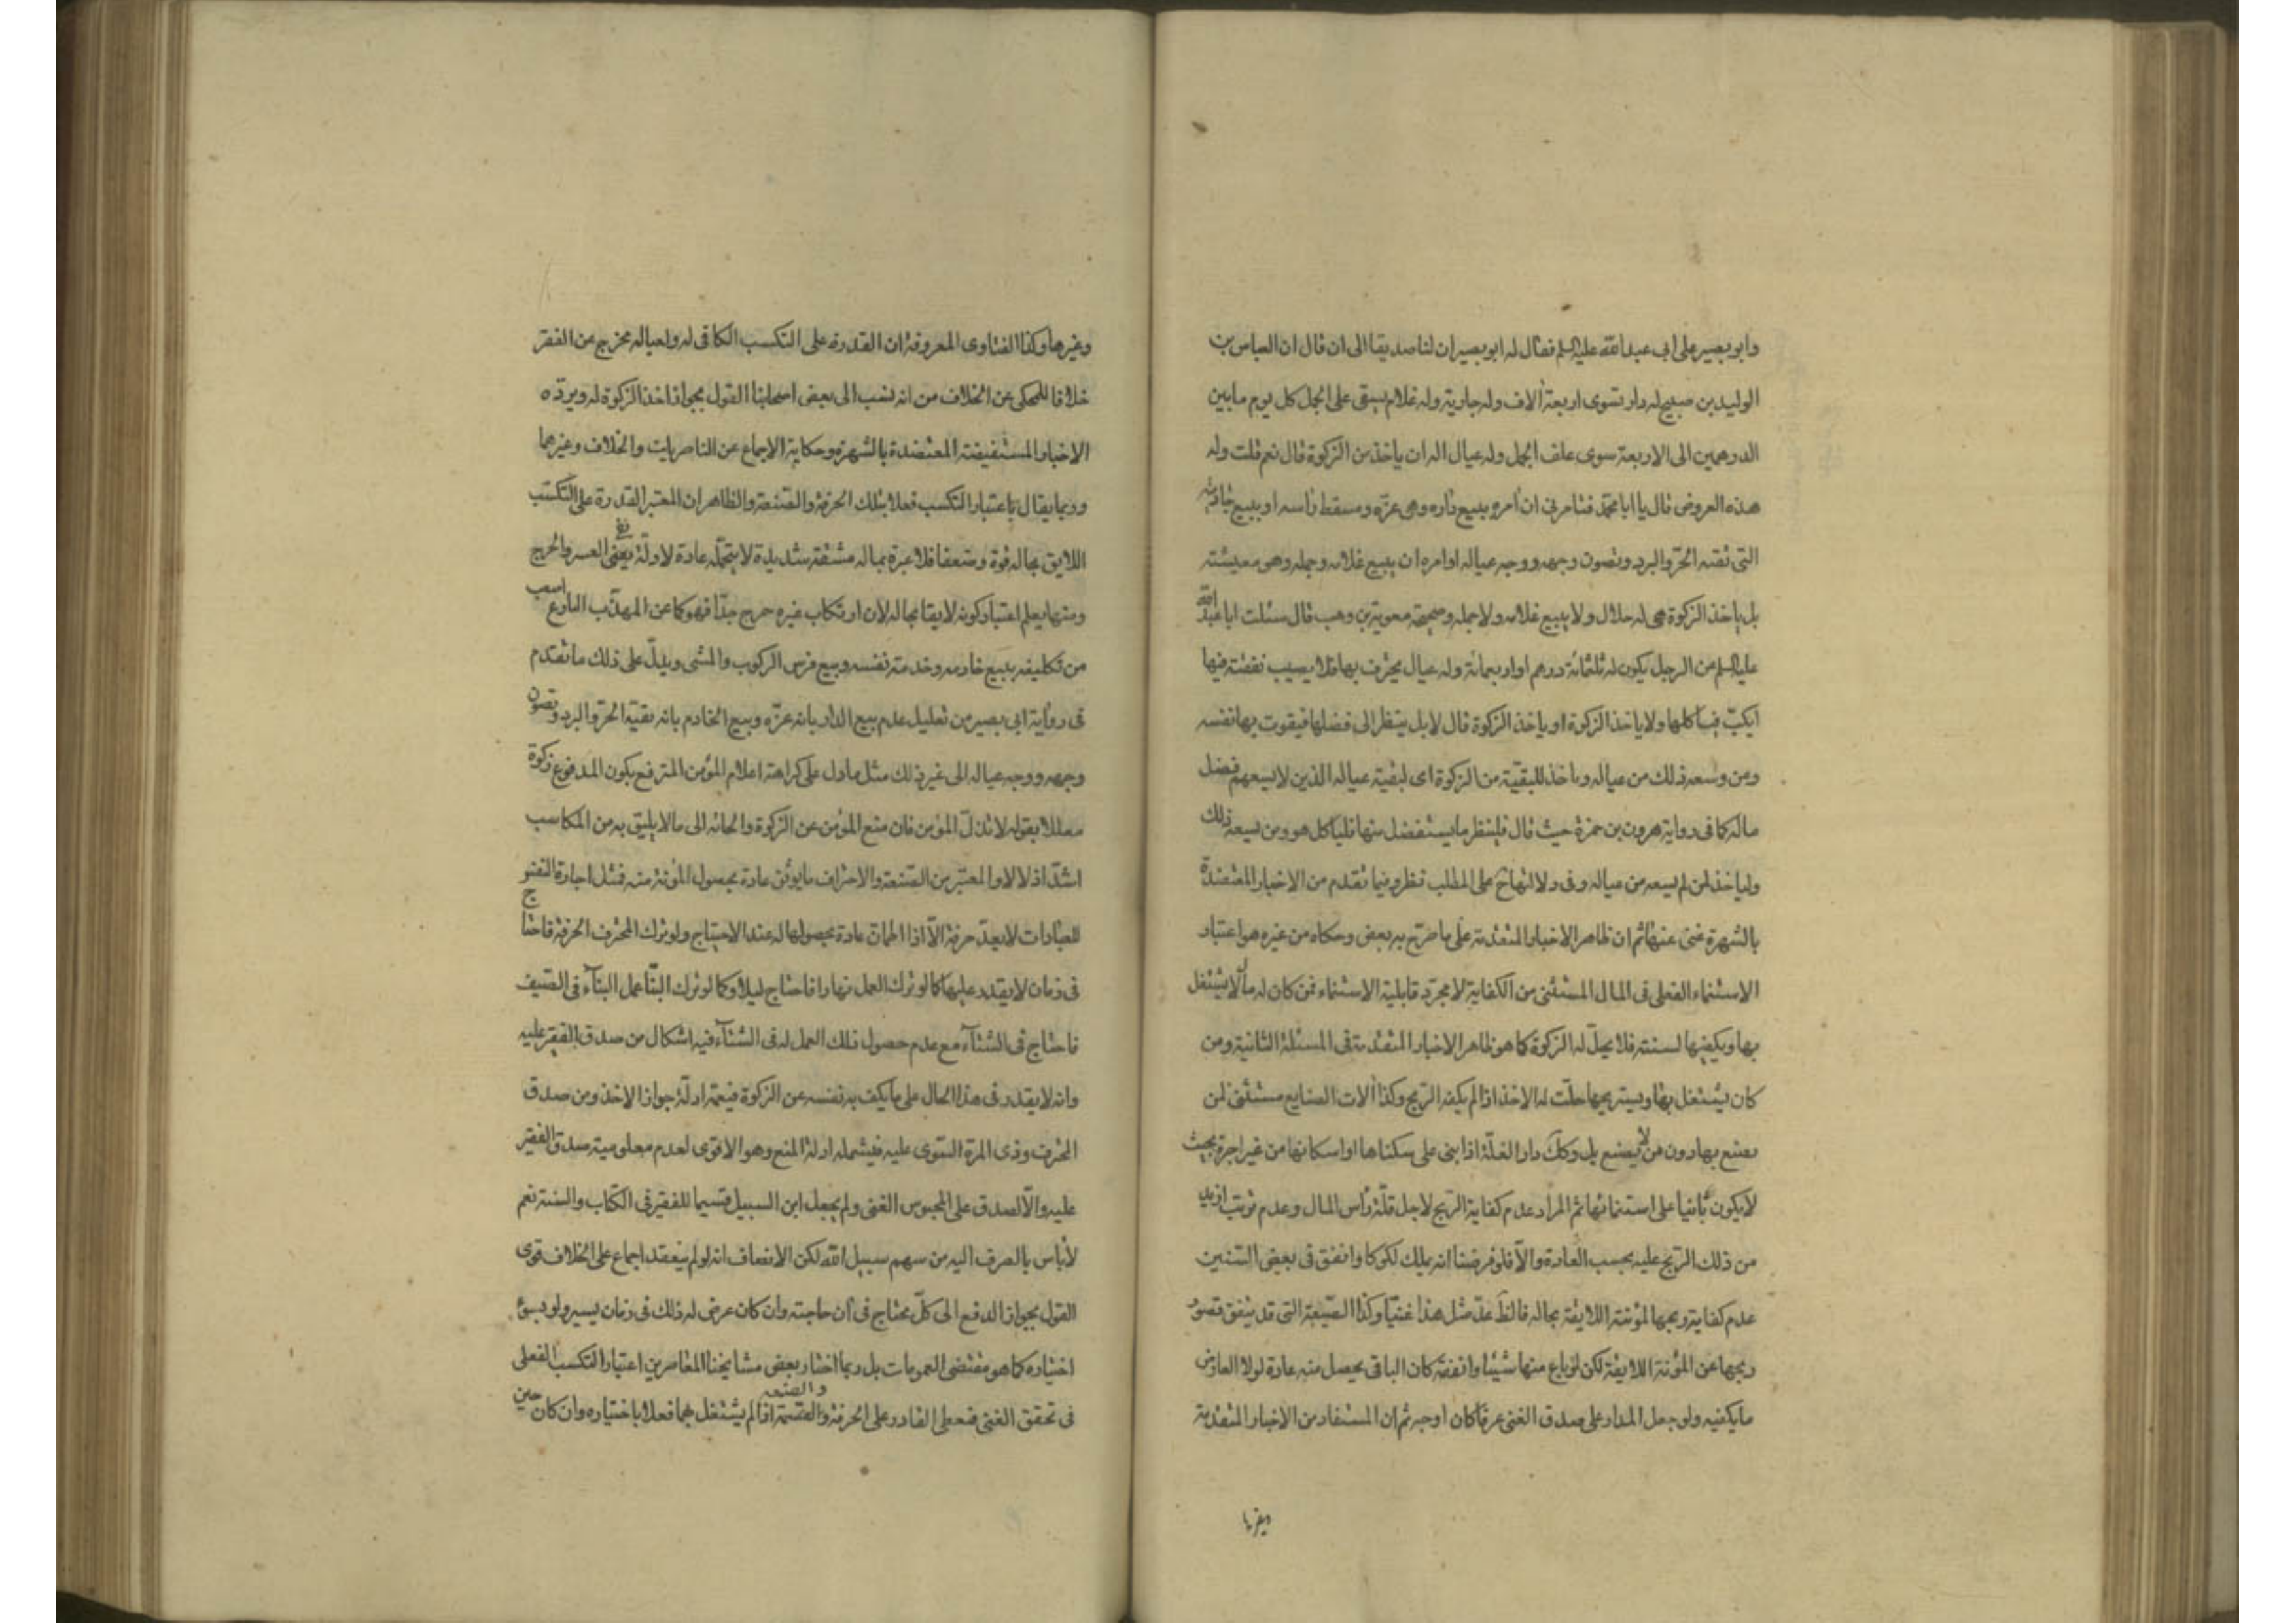 وابو بصير على ابي عبد الله عليه السلم فقال له ابو بصير ان لنا صديقا الى ان قال ان العباس بن
الوليد بن صبيح له دار تسوى اربعة آلاف وله جارية وله غلام يستقى على الجمل كل يوم ما بين
الدرهمين الى الاربعة سوى علف الجمل وله عيال اله ان ياخذ من الزكوة قال نعم قلت وله
هذه العروض قال يا ابا محمد فتامرنى ان آمره ببيع داره وهى عزّه ومسقط رأسه او ببيع خادمته
التى تقيه الحرّ والبرد وتصون وجهه ووجه عياله او امره ان يبيع غلامه وجمله وهو معيشته
بل ياخذ الزكوة هى له حلال ولا يبيع غلامه ولا جمله وصحيحة معوية بن وهب قال سئلت ابا عبد الله
عليه السلم عن الرجل يكون له ثلثمائة درهم او اربعمائة وله عيال يحترف بها فلا يصيب نفقته فيها
ايكبّ فيأكلها ولا ياخذ الزكوة او ياخذ الزكوة قال لا بل ينظر الى فضلها فيقوت بها نفسه
ومن وسعه ذلك من عياله وياخذ للبقيّة من الزكوة اى لبقية عياله الذين لا يسعهم فضل
ماله كما فى رواية هرون بن حمزة حيث قال فلينظر ما يستفضل منها فلياكل هو ومن يسعه ذلك
ولياخذ لمن لم يسعه من عياله وفى دلالتها على المطلب نظر وفيما تقدم من الاخبار المعتضدة
بالشهرة غنى عنها ثم ان ظاهر الاخبار المتقدمة على ما صرّح به بعض وحكاه من غيره هو اعتبار
الاستنماء الفعلى فى المال المستثنى من الكفاية لا مجرّد قابلية الاستنماء فمن كان له مال لا يشتغل
بها ويكفيها لسنته فلا يحلّ له الزكوة كما هو ظاهر الاخبار المتقدمة فى المسئلة الثانية ومن
كان يشتغل بها ويستربحها حلّت له الاخذ اذا لم يكفه الربح وكذا آلات الصنايع مستثنى لمن
يصنع بها دون من لا يصنع بل وكك دار الغلّة اذا بنى على سكناها او اسكانها من غير اجرة بحيث
لا يكون بانيا على استنمائها ثم المراد عدم كفاية الربح لاجل قلّة رأس المال وعدم ترتب ازيد
من ذلك الربح عليه بحسب العادة والّا فلو فرضنا انه يملك لكوكا واتفق فى بعض السنين
عدم كفاية ربحها لمؤنته اللايقة بحاله فالظ عدّ مثل هذا غنيّا وكذا الضيعة التى قد يتفق قصور
ربحها عن المؤنة اللايقة لكن لو باع منها شيئا وانفقه كان الباقى يحصل منه عادة لولا العارض
ما يكفيه ولو جعل المدار على صدق الغنى عرفا كان اوجه ثم ان المستفاد من الاخبار المتقدمة
وغيرها
وغيرها وكذا الفتاوى المعروفة ان القدرة على التكسب الكافى له ولعياله مخرج عن الفقر
خلافا للمحكى عن الخلاف من انه نسب الى بعض اصحابنا القول بجواز اخذ الزكوة له ويردّه
الاخبار المستفيضة المعتضدة بالشهرة وحكاية الاجماع عن الناصريات والخلاف وغيرهما
وربما يقال باعتبار التكسب فعلا بتلك الحرفة والصنعة والظاهر ان المعتبر القدرة على التكسب
اللايق بحاله قوة وضعفا فلا عبرة بما له مشقة شديدة لا يتحمّل عادة لادلّة نفى العسر والحرج
ومنها يعلم اعتبار كونه لايقا بحاله لان ارتكاب غيره حرج جدّا فهو كما عن المهذّب البارع اصعب
من تكليفه ببيع خادمه وخدمته نفسه وبيع فرس الركوب والمشى ويدلّ على ذلك ما تقدم
فى رواية ابى بصير من تعليل عدم بيع الدار بانه عزّه وبيع الخادم بانه تقيّه الحرّ والبرد وتصون
وجهه ووجه عياله الى غير ذلك مثل ما دل على كراهة اعلام المؤمن المترفع بكون المدفوع زكوة
معللا بقوله لا تذلّ المؤمن فان منع المؤمن عن الزكوة والجائه الى ما لا يليق به من المكاسب
اشدّ اذلالا والمعتبر من الصّنعة والاحتراف ما يوثق عادة بحصول المؤنة منه فمثل اجارة النفس
للعبادات لا يعدّ حرفة الّا اذا اطمان عادة بحصولها له عند الاحتياج ولو ترك المحترف الحرفة فاحتاج
فى زمان لا يقدر عليها كما لو ترك العمل نهارا فاحتاج ليلا وكما لو ترك البنّا عمل البناء فى الصّيف
فاحتاج فى الشتاء مع عدم حصول ذلك العمل له فى الشتاء فيه اشكال من صدق الفقير عليه
وانه لا يقدر فى هذا الحال على ما يكف به نفسه عن الزكوة فيعمّه ادلّة جواز الاخذ ومن صدق
المحترف وذى المرة السّوى عليه فيشمله ادلة المنع وهو الاقوى لعدم معلومية صدق الفقير
عليه والّا لصدق على المحبوس الغنى ولم يجعل ابن السبيل قسيما للفقير فى الكتاب والسنة نعم
لا بأس بالصرف اليه من سهم سبيل الله لكن الانصاف انه لو لم ينعقد اجماع على الخلاف قوى
القول بجواز الدفع الى كلّ محتاج فى آن حاجته وان كان عرض له ذلك فى زمان يسير ولو بسوء
اختياره كما هو مقتضى العمومات بل ربما اختار بعض مشايخنا المعاصرين اعتبار التكسب الفعلى
فى تحقق الغنى فيعطى القادر على الحرفة والصنعة اذا لم يشتغل بهما فعلا باختياره وان كان حين